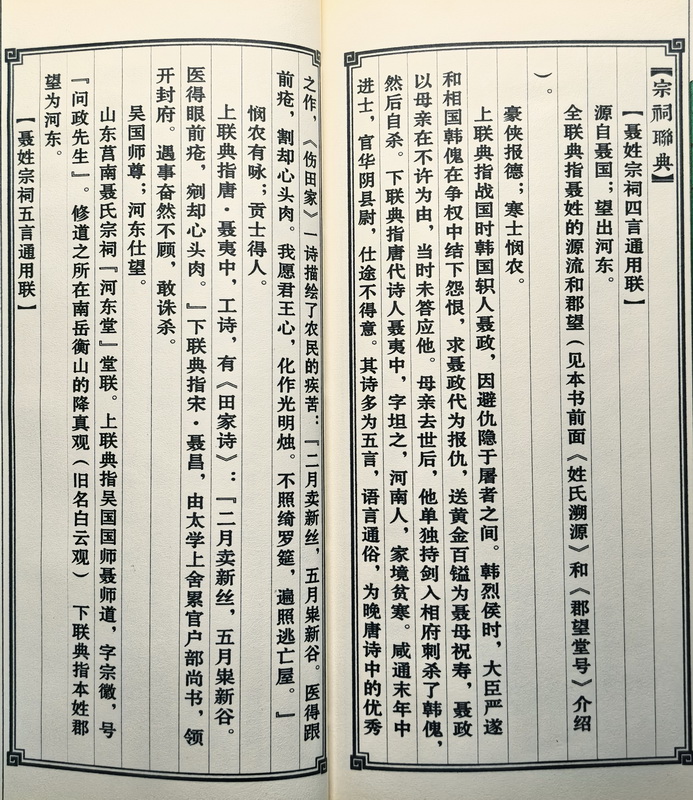 【宗祠聯典】
【聂姓宗祠四言通用联】
源自聂国；望出河东。
全联典指聂姓的源流和郡望（见本书前面《姓氏溯源》和《郡望堂号》介绍
）。
豪侠报德；寒士悯农。
上联典指战国时韩国轵人聂政，因避仇隐于屠者之间。韩烈侯时，大臣严遂
和相国韩傀在争权中结下怨恨，求聂政代为报仇，送黄金百镒为聂母祝寿，聂政
以母亲在不许为由，当时未答应他。母亲去世后，他单独持剑入相府刺杀了韩傀，
然后自杀。下联典指唐代诗人聂夷中，字坦之，河南人，家境贫寒。咸通末年中
进士，官华阴县尉，仕途不得意。其诗多为五言，语言通俗，为晚唐诗中的优秀
之作，《伤田家》一诗描绘了农民的疾苦：『二月卖新丝，五月粜新谷。医得跟
前疮，割却心头肉。我愿君王心，化作光明烛。不照绮罗筵，遍照逃亡屋。』
悯农有咏；贡士得人。
上联典指唐·聂夷中，工诗，有《田家诗》：『二月卖新丝，五月粜新谷。
医得眼前疮，剜却心头肉。』下联典指宋·聂昌，由太学上舍累官户部尚书，领
开封府。遇事奋然不顾，敢诛杀。
吴国师尊；河东仕望。
山东莒南聂氏宗祠『河东堂』堂联。上联典指吴国国师聂师道，字宗徽，号
『问政先生』。修道之所在南岳衡山的降真观（旧名白云观） 下联典指本姓郡
望为河东。
【聂姓宗祠五言通用联】